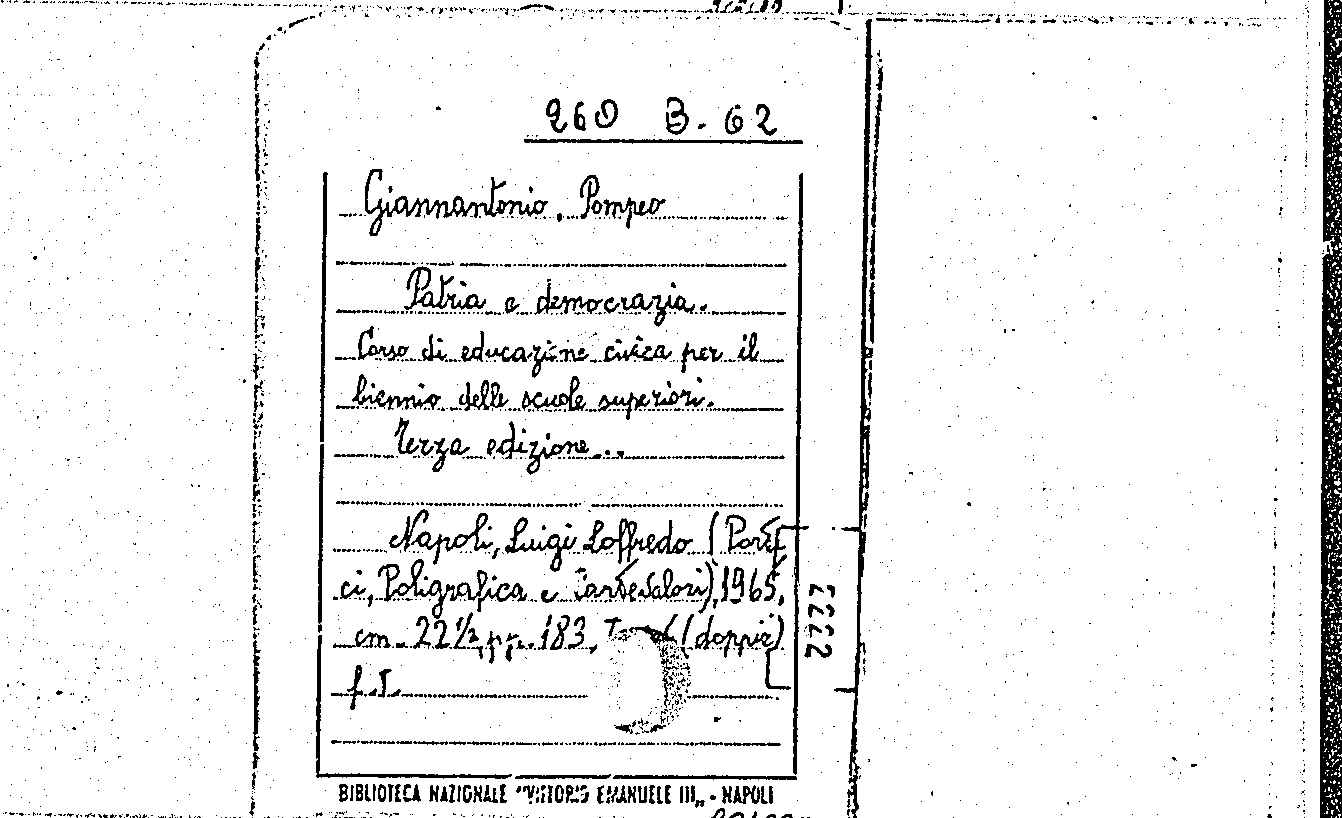 260 B. 62
Giannantonio, Pompeo
Patria e democrazia.
Corso di educazione civica per il
biennio delle scuole superiori.
Terza edizione...
Napoli, Luigi Loffredo (Porti
ci, Poligrafica e Cartevalori), 1965,
cm. 22 ½, pp. 183, (doppie)
f.t.
2222
BIBLIOTECA NAZIONALE "VITTORIO EMANUELE III" - NAPOLI